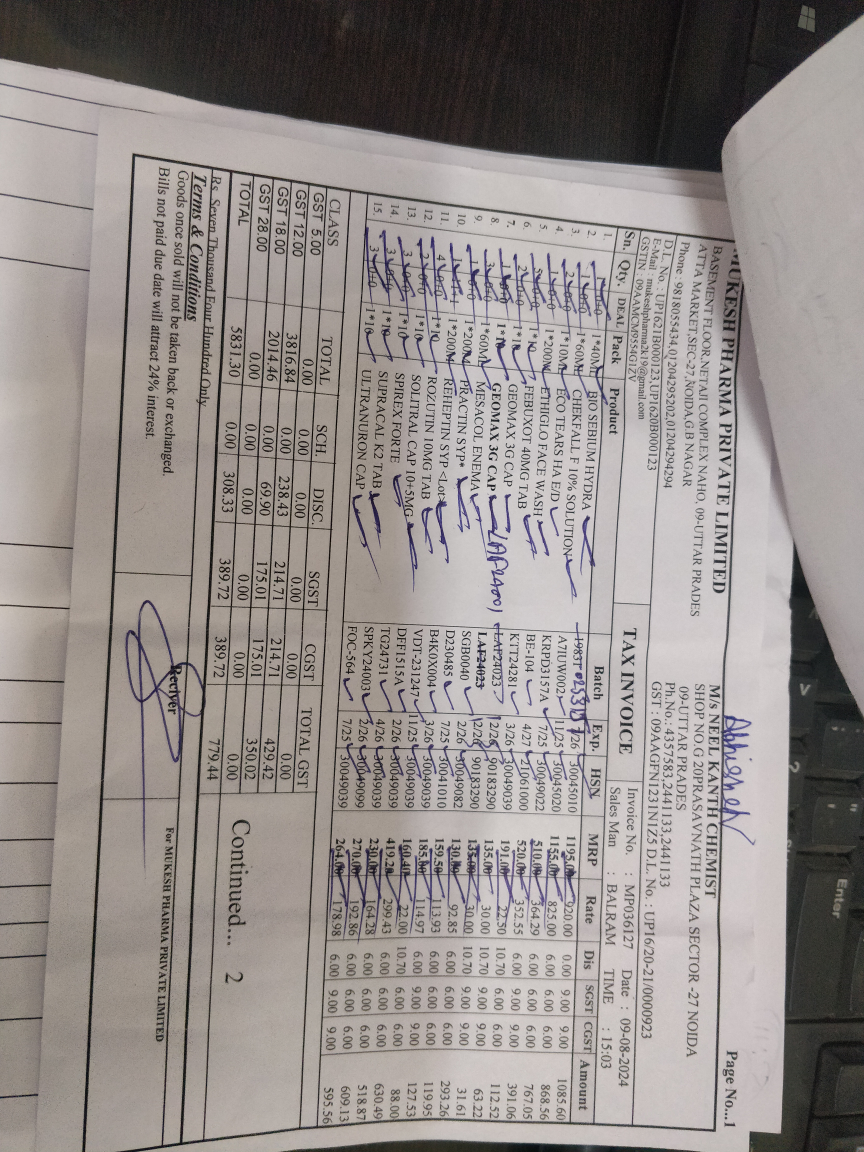 Page No...1
MUKESH PHARMA PRIVATE LIMITED
BASEMENT FLOOR,NETAJI COMPLEX NAHO, 09-UTTAR PRADES
ATTA MARKET,SEC-27,NOIDA,G.B NAGAR
Phone : 9818055434,01204295202,01204294294
D.L. No.: UP1621B000123,UP1620B000123
E-Mail : mukeshpharma2k10@gmail.com
GSTIN : 09AAMCM9554G1ZV
Abhishek
M/s NEEL KANTH CHEMIST
SHOP NO.G 20PRASAVNATH PLAZA SECTOR -27 NOIDA
09-UTTAR PRADES
Ph.No.: 4357583,2441133,2441133
GST : 09AAGFN1231N1Z5 D.L. No. : UP16/20-21/0000923
TAX INVOICE
Invoice No. : MP036127 Date : 09-08-2024
Sales Man : BALRAM TIME : 15:03
Sn. Qty. DEAL Pack Product Batch Exp. HSN MRP Rate Dis SGST CGST Amount
1. 1*40ML BIO SEBIUM HYDRA 1983T 7/26 30045010 1195.00 920.00 0.00 9.00 9.00 1085.60
2. 1*60ML CHEKFALL F 10% SOLUTION A7IUW002 11/25 30045020 1155.00 825.00 6.00 6.00 6.00 868.56
3. 1*10ML ECO TEARS HA E/D KRPD3157A 7/25 30049022 510.00 364.29 6.00 6.00 6.00 767.05
4. 1*200M ETHIGLO FACE WASH BE-104 4/27 21001000 520.00 352.55 6.00 9.00 9.00 391.06
5. 1*10 FEBUXOT 40MG TAB KTT24281 3/26 30049039 191.00 22.50 10.70 6.00 6.00 112.52
6. 1*1 GEOMAX 3G CAP LAF24023 12/26 90183290 135.00 30.00 10.70 9.00 9.00 63.22
7. 1*1 GEOMAX 3G CAP LAF24001 LAF24023 12/26 90183290 135.00 30.00 10.70 9.00 9.00 31.61
8. 1*60ML MESACOL ENEMA SGB0040 2/26 30049082 130.00 92.85 6.00 6.00 6.00 293.26
9. 1*200M PRACTIN SYP* D230485 7/25 30041010 159.50 113.93 6.00 6.00 6.00 119.95
10. 1*200M REHEPTIN SYP <Lot> B4K0X004 3/26 30049039 185.00 114.97 6.00 9.00 9.00 127.53
11. 1*10 ROZUTIN 10MG TAB VDT-231247 11/25 30049039 160.40 22.00 10.70 6.00 6.00 88.00
12. 1*10 SOLITRAL CAP 10+5MG DFF1515A 2/26 30049039 419.28 299.43 6.00 6.00 6.00 630.49
13. 1*10 SPIREX FORTE TG24731 4/26 30049039 230.00 164.28 6.00 6.00 6.00 518.87
14. 1*10 SUPRACAL K2 TAB SPKY24003 2/26 30049099 270.00 192.86 6.00 6.00 6.00 609.13
15. 1*10 ULTRANURON CAP FOC-564 7/25 30049039 264.00 178.98 6.00 9.00 9.00 595.56
CLASS TOTAL SCH. DISC. SGST CGST TOTAL GST
GST 5.00 0.00 0.00 0.00 0.00 0.00 0.00
GST 12.00 3816.84 0.00 238.43 214.71 214.71 429.42
GST 18.00 2014.46 0.00 69.90 175.01 175.01 350.02
GST 28.00 0.00 0.00 0.00 0.00 0.00 0.00
TOTAL 5831.30 0.00 308.33 389.72 389.72 779.44
Continued... 2
Rs. Seven Thousand Four Hundred Only
Terms & Conditions
Goods once sold will not be taken back or exchanged.
Bills not paid due date will attract 24% interest.
Reciver
For MUKESH PHARMA PRIVATE LIMITED
Enter